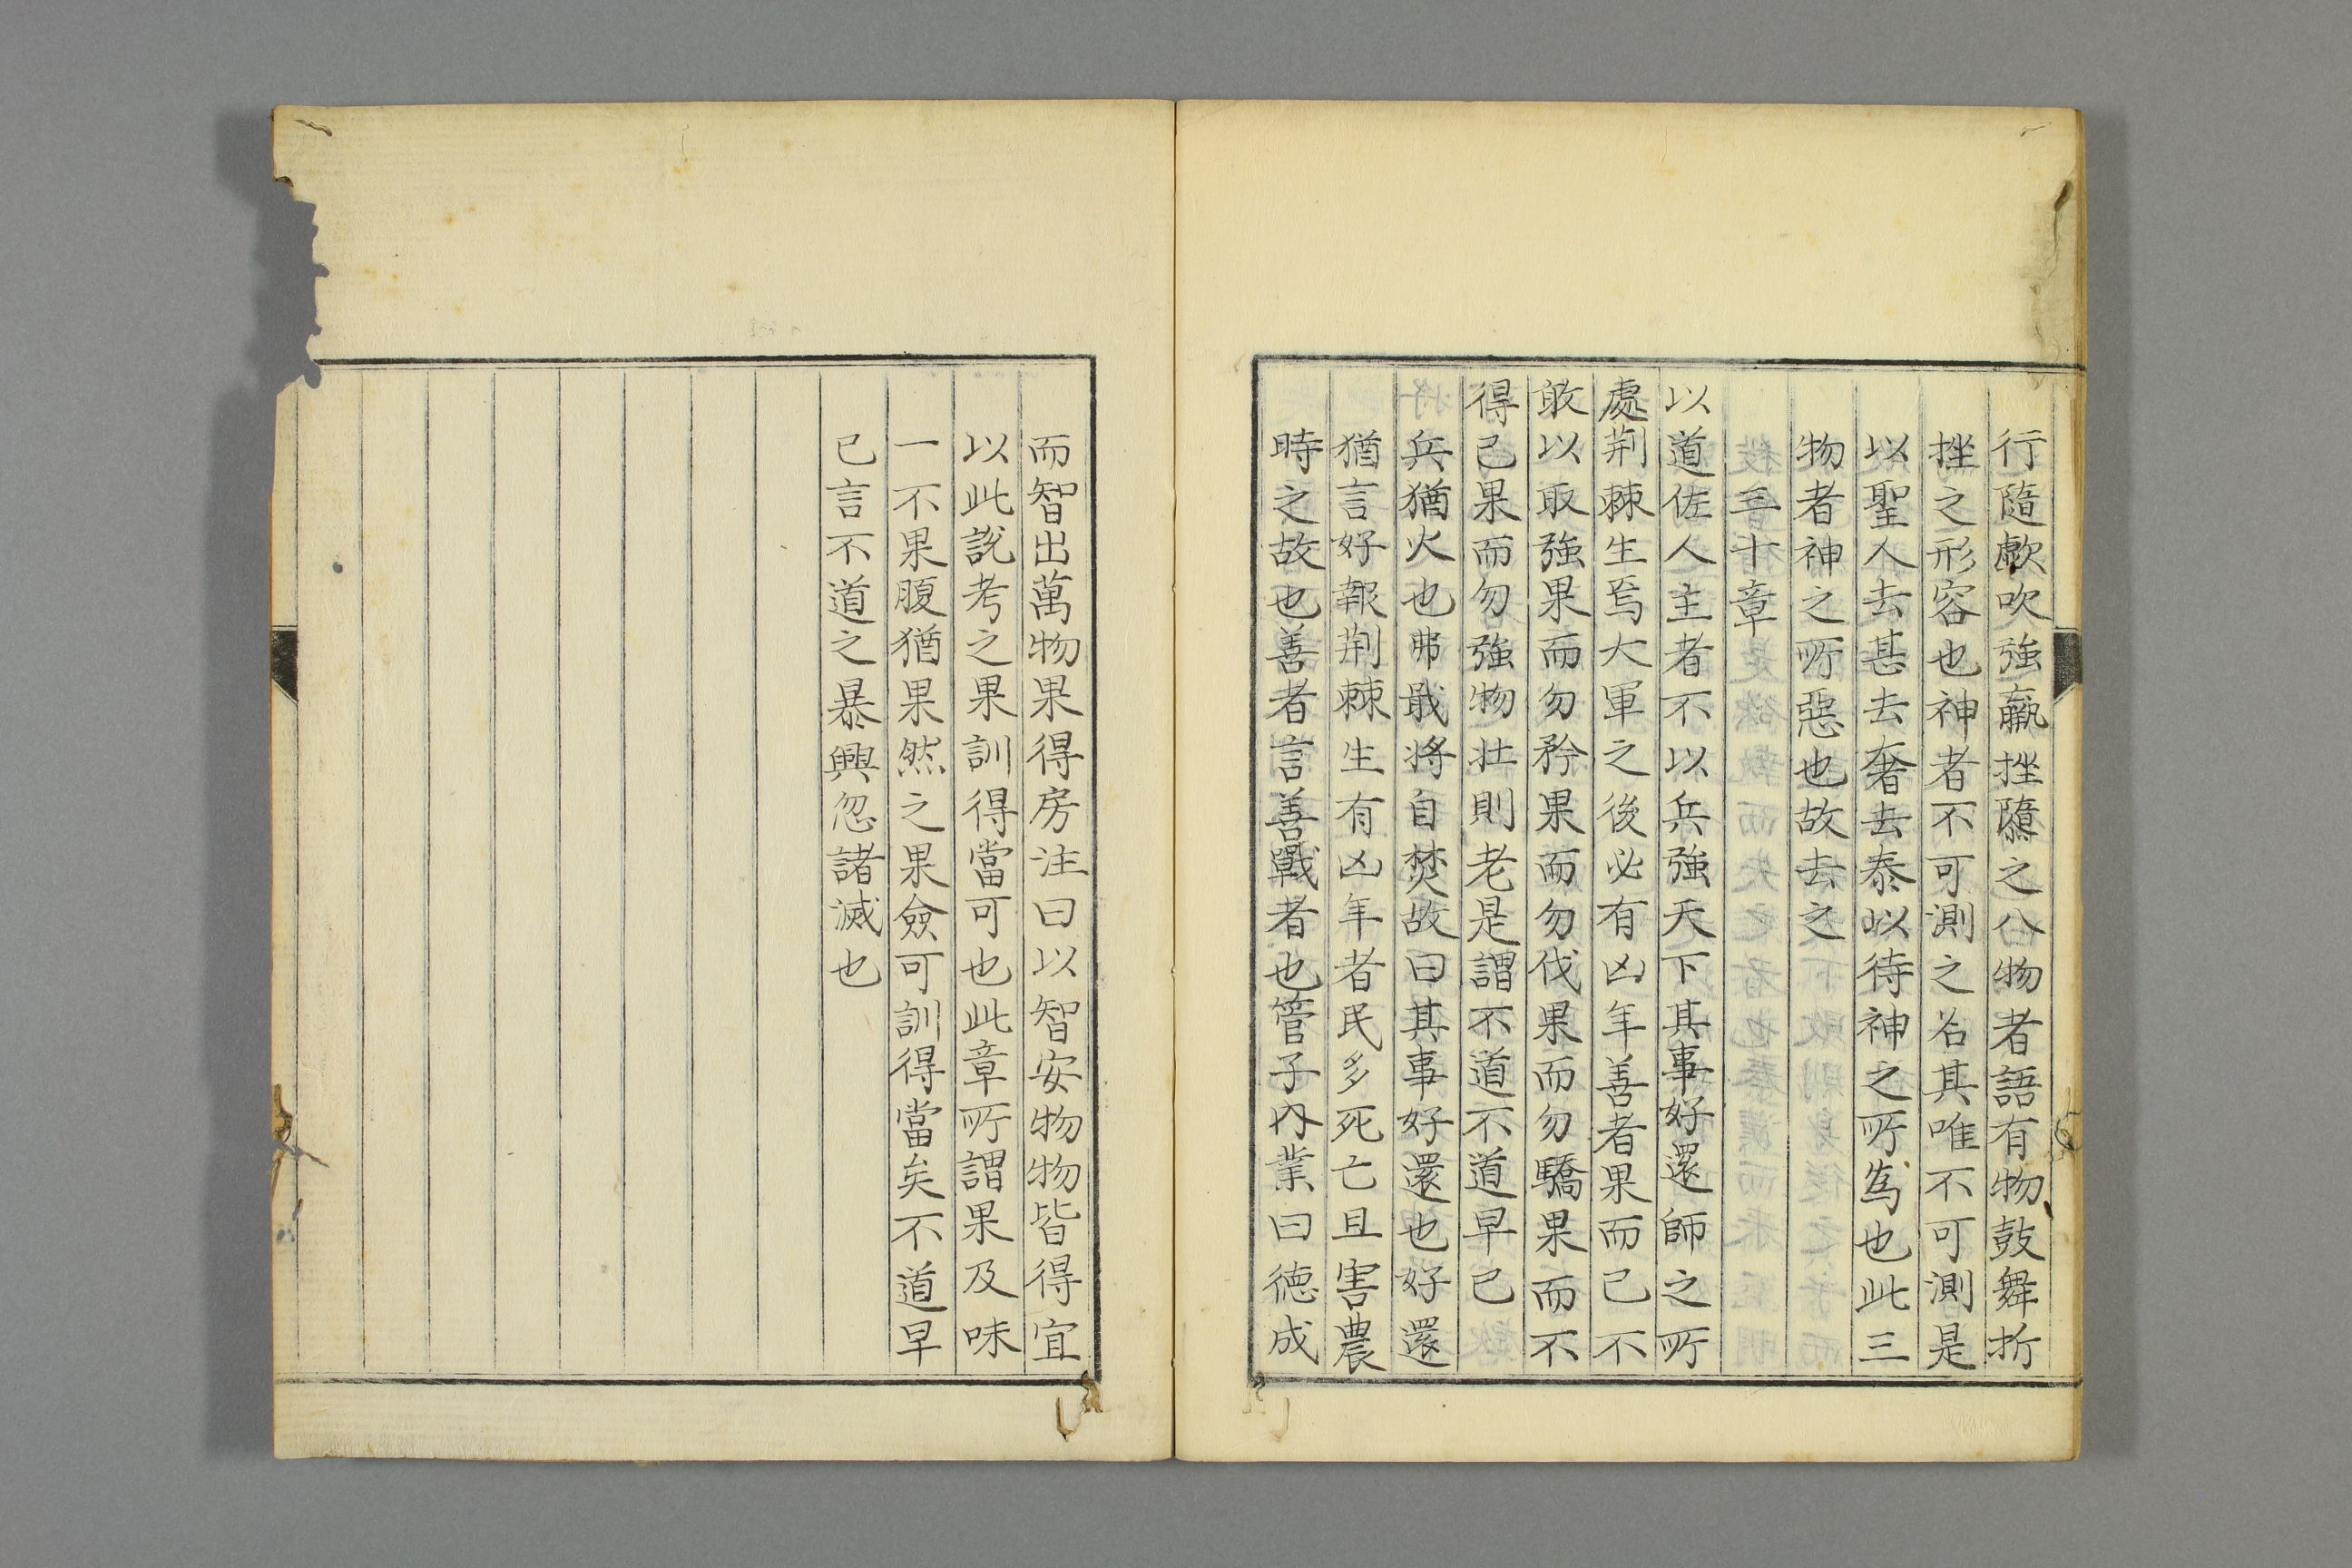 行隨歔吹強羸挫隳之八物者語有物鼓舞折
挫之形容也神者不可測之名其唯不可測是
以聖人去甚去奢去泰以待神之所為也此三
物者神之所惡也故去之
三十章
以道佐人主者不以兵強天下其事好還師之所
處荆棘生焉大軍之後必有凶年善者果而已不
敢以取強果而勿矜果而勿伐果而勿驕果而不
得已果而勿強物壮則老是謂不道不道早已
兵猶火也弗戢将自焚故曰其事好還也好還
猶言好報荆棘生有凶年者民多死亡且害農
時之故也善者言善戰者也管子內業曰徳成
而智出萬物果得房注曰以智安物物皆得宜
以此説考之果訓得當可也此章所謂果及味
一不果腹猶果然之果僉可訓得當矣不道早
已言不道之暴興忽諸滅也